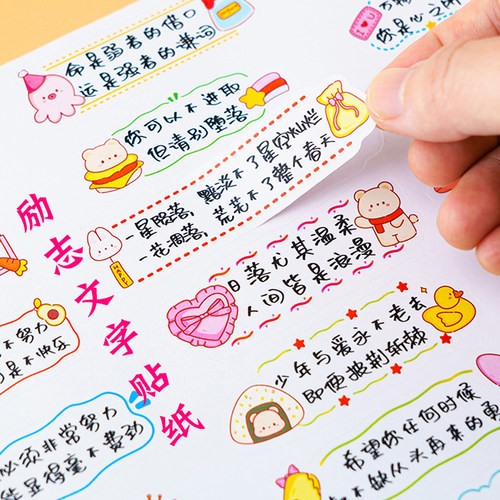 命是弱者的借口
运是强者的谦词
你可以不进取
但请别堕落
一星陨落,黯淡不了星空灿烂
一花凋落,荒芜不了整个春天
励志文字贴纸
日落尤其温柔
人间皆是浪漫
不努力
是不快乐
少年与爱永不老去
即便披荆斩棘
必须非常努力
能显得毫不费劲
希望你任何时候
不缺从头再来的勇
你是心之所